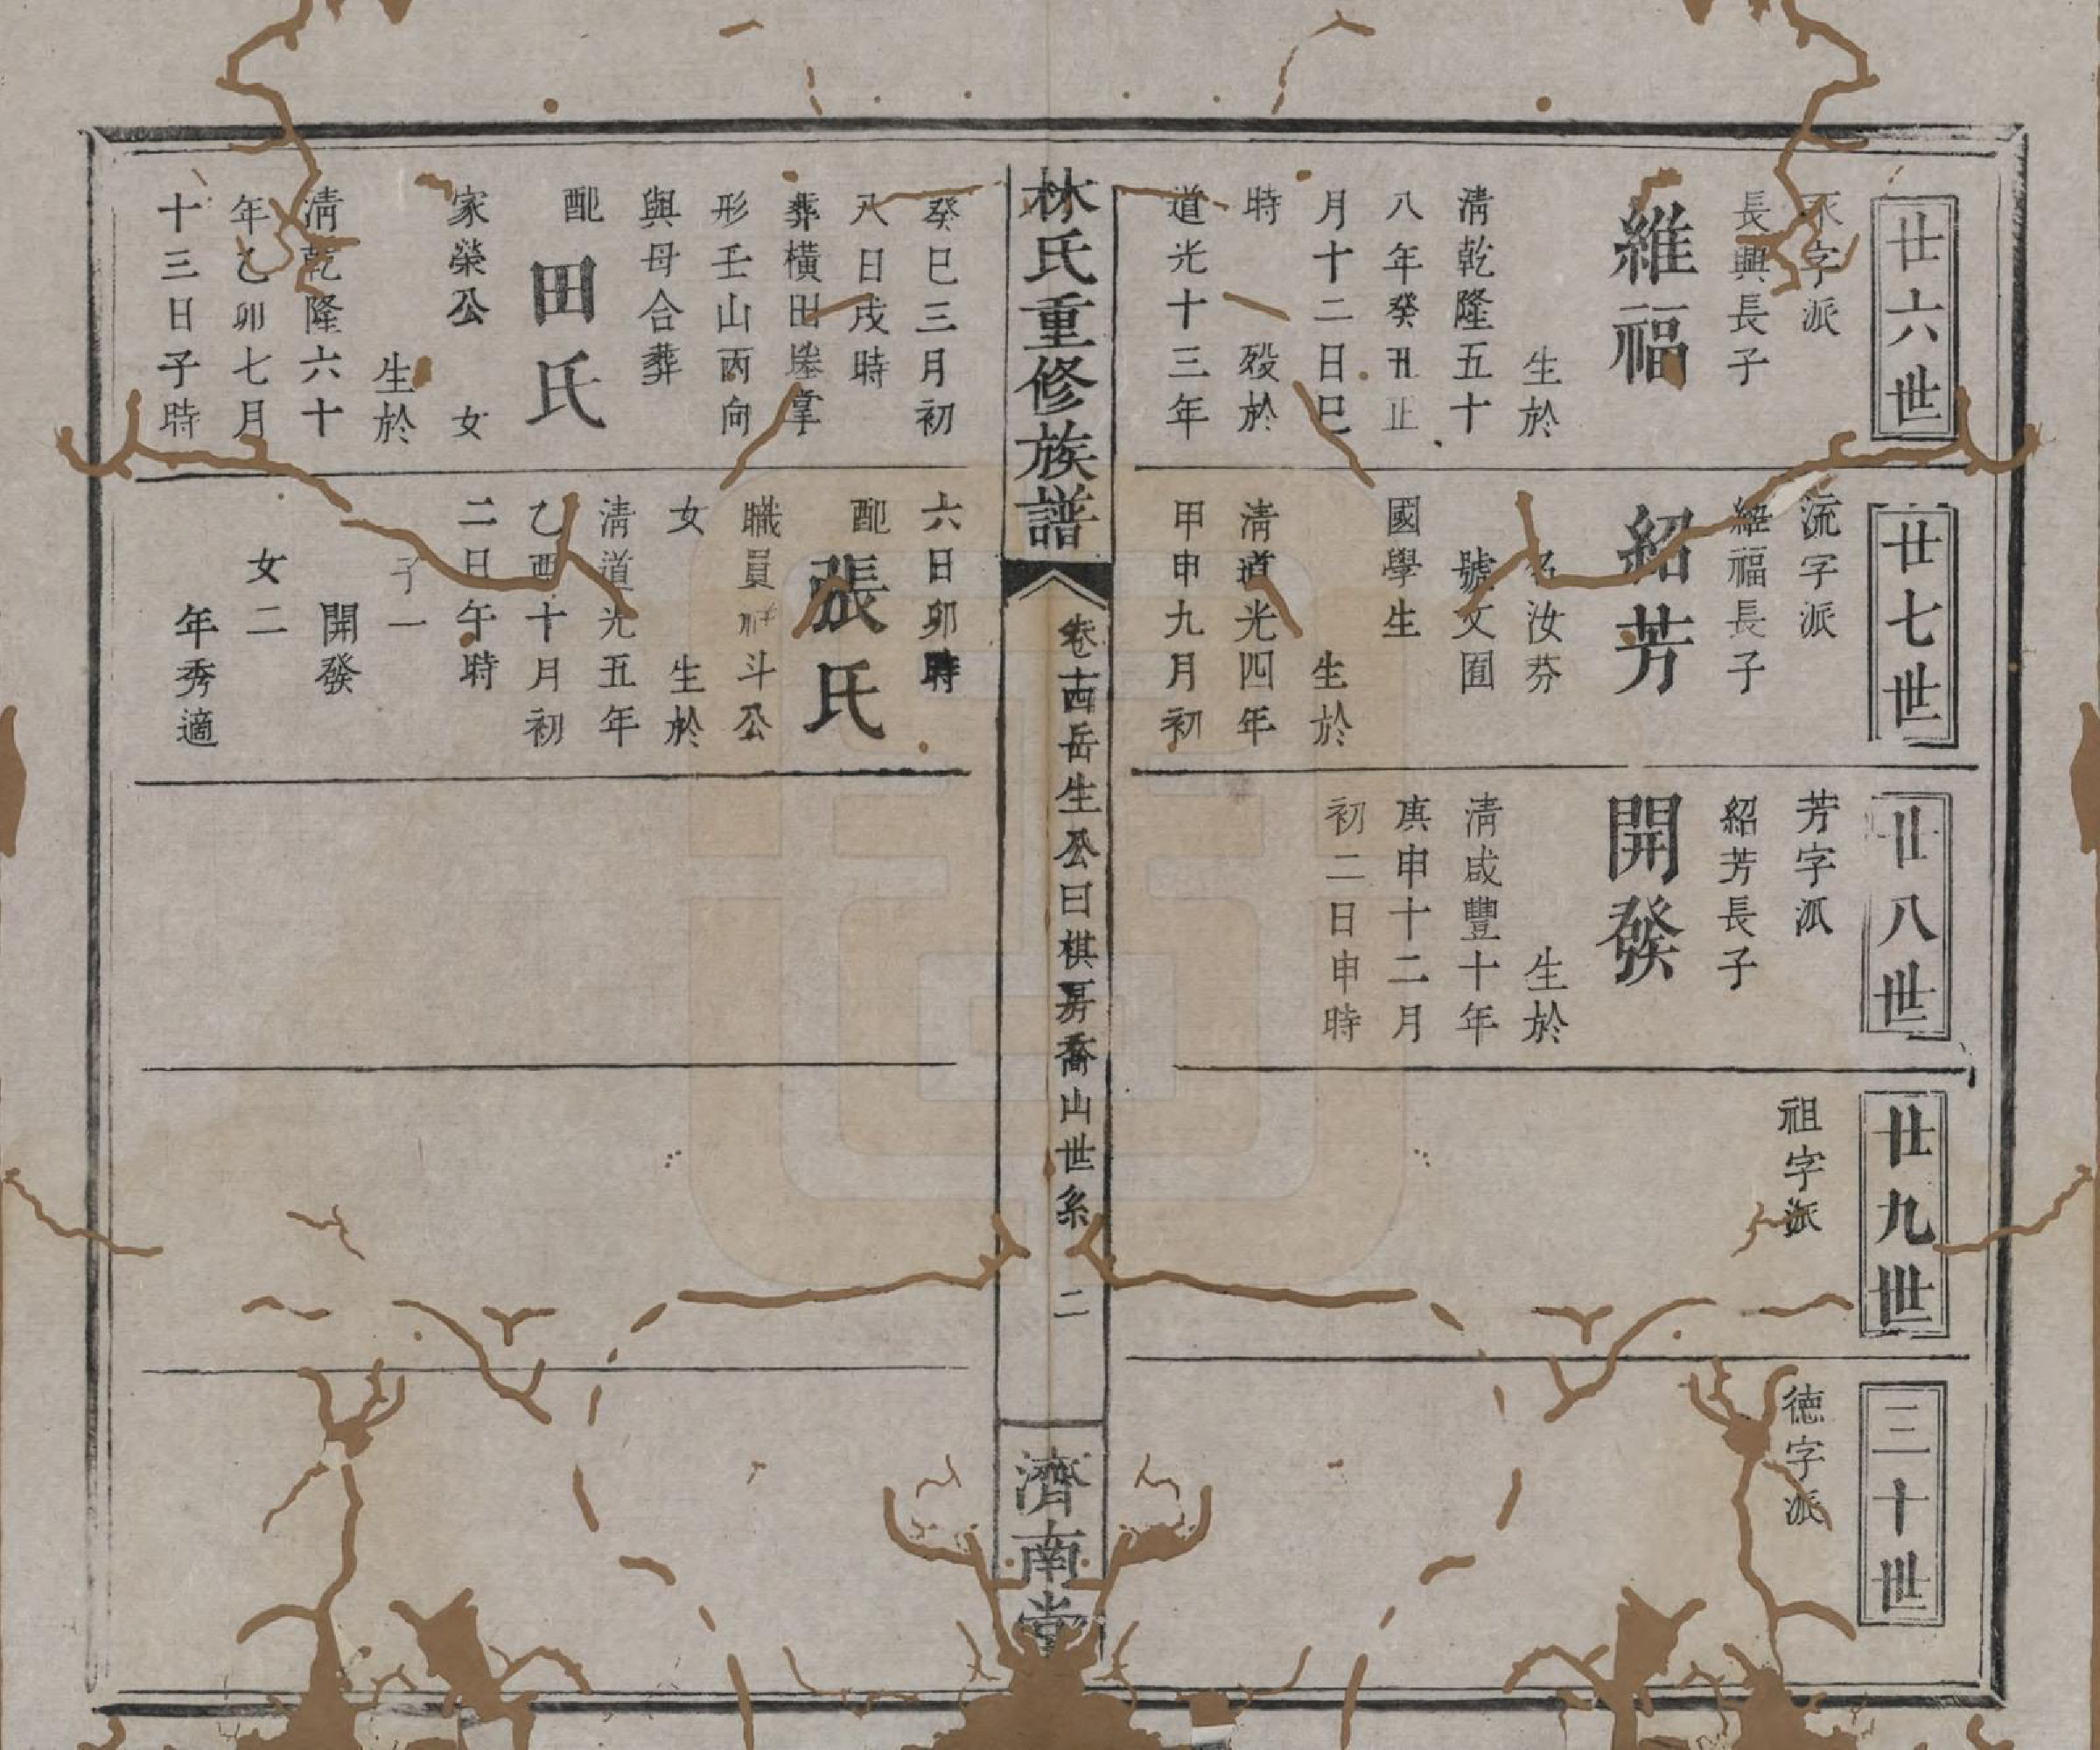 廿六世
字派
長興長子
維福
生於
淸乾隆五十
八年癸丑正
月十二日巳
時 歿於
道光十三年
廿七世
流字派
維福長子
紹芳
名汝芬
號文囿
國學生
生於
淸道光四年
甲申九月初
廿八世
芳字派
紹芳長子
開發
生於
淸咸豐十年
庚申十二月
初二日申時
廿九世
祖字派
三十世
德字派
林氏重修族譜
卷十四岳生公曰棋房喬山世系
二
濟南堂
癸巳三月初
八日戌時
葬橫田塝掌
形壬山丙向
與母合葬
配田氏
家榮公 女
生於
淸乾隆六十
年乙卯七月
十三日子時
六日卯時
配張氏
職員 斗公
女 生於
淸道光五年
乙酉十月初
二日午時
子一
開發
女二
年秀適